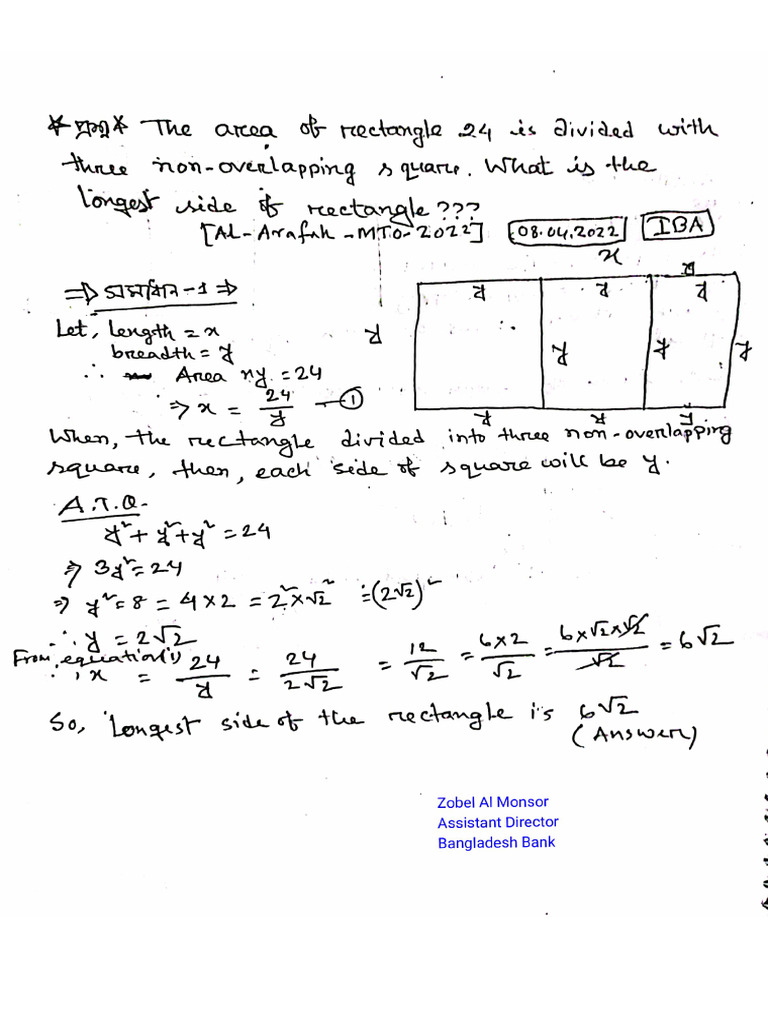 * প্রশ্ন * The area of rectangle 24 is divided with
three non-overlapping square. What is the
longest side of rectangle???
[Al-Arafah-MTO-2022] 08.04.2022 IBA
x
y y y y
⇒ সমাধান-1 ⇒
Let, length = x
y y y y
breadth = y
∴ Area xy = 24
⇒ x = 24/y —①
y y y
When, the rectangle divided into three non-overlapping
square, then, each side of square will be y.
A.T.Q.
y²+ y²+y² = 24
⇒ 3y²= 24
⇒ y²= 8 = 4×2 = 2²×√2² = (2√2)²
∴ y = 2√2
From equation(1)
∴, x = 24/y = 24/2√2 = 12/√2 = 6×2/√2 = 6×√2×√2/√2 = 6√2
So, Longest side of the rectangle is 6√2
(Answer)
Zobel Al Monsor
Assistant Director
Bangladesh Bank